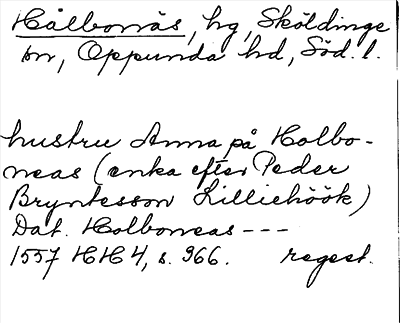 Hålbonäs, hg, Sköldinge
sn, Oppunda hd, Söd. l.
hustru Anna på Holbo-
neas (enka efter Peder
Bryntesson Lilliehöök)
Dat. Holboneas ---
1557 HH 4, s. 966. regest.